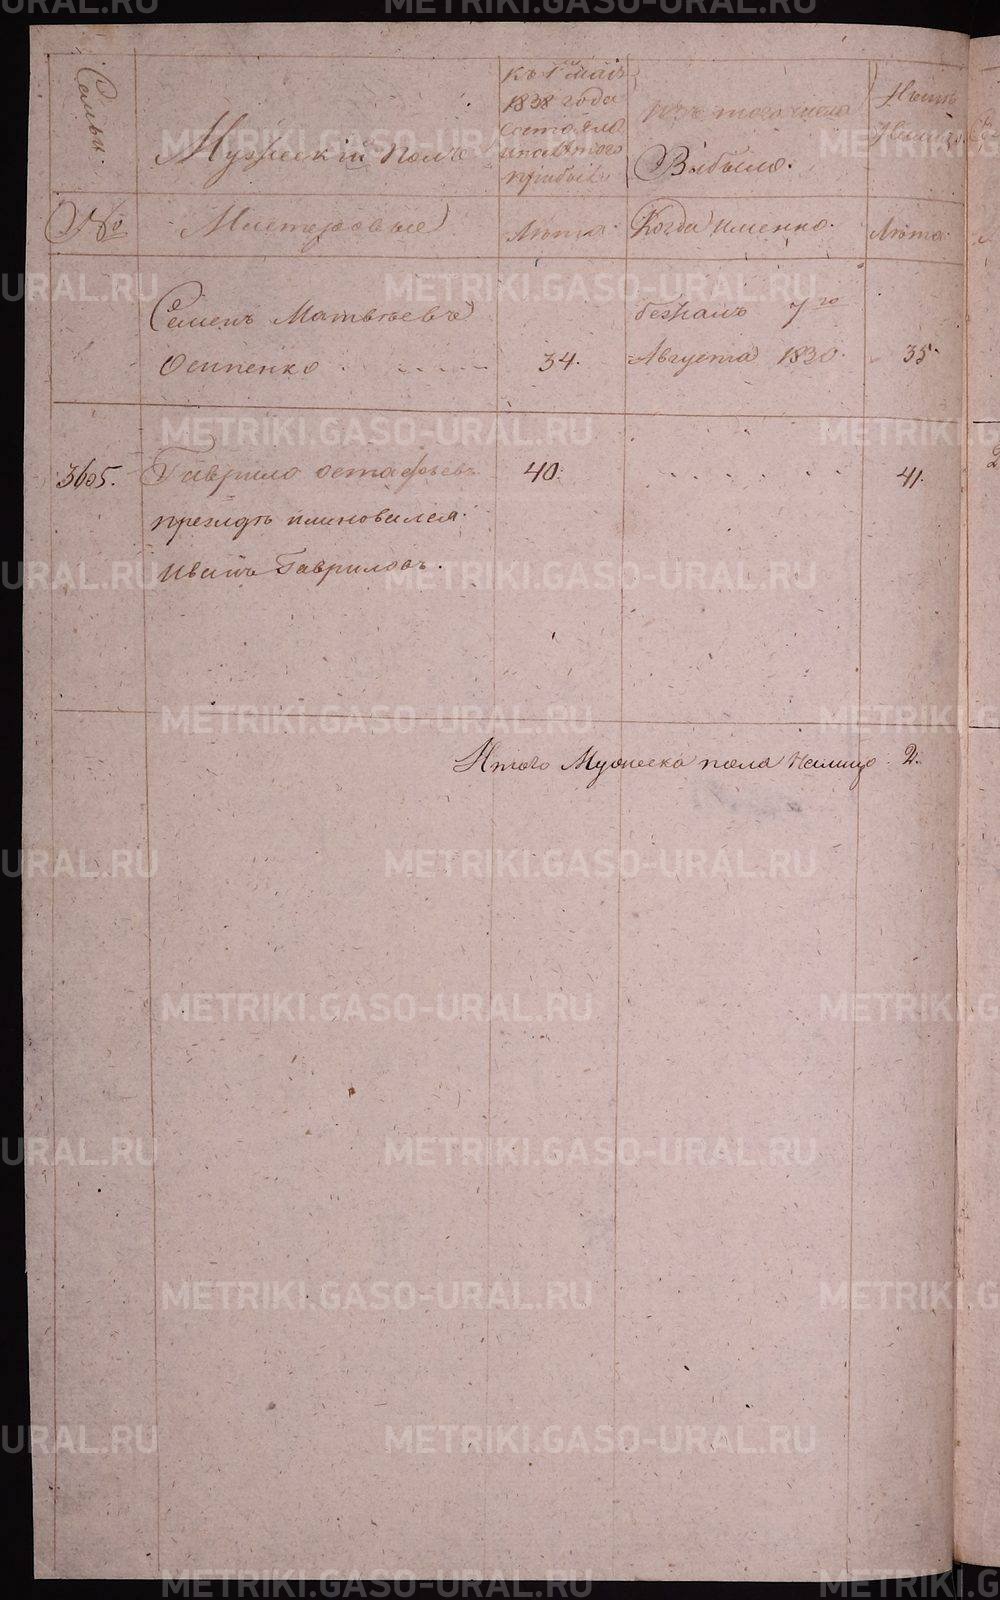 Семьи.
Мужескій полъ
Къ 1 маія
1838 года
Состояло
и после того
прибыло
Изъ того числа
Выбыло.
Ныне
Налицо.
№
Мастеровые
Лѣта.
Когда именно.
Лѣта.
Семенъ Матвѣевъ
безжалъ 7го
Осипенко
34.
Августа 1830.
35.
3605.
Гаврило остафьевъ
40.
41.
преждѣ именовался
Иванъ Гавриловъ.
Итого Мужеска пола Налицо 2.
METRIKI.GASO-URAL.RU